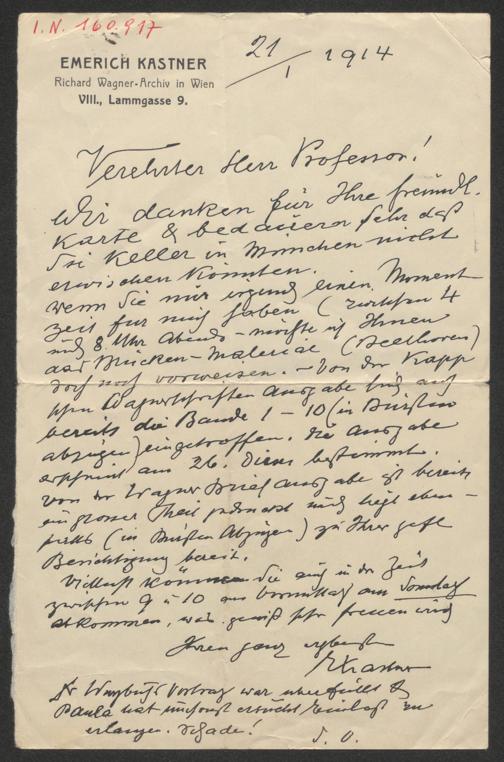 I.N. 160.917
EMERICH KASTNER
Richard Wagner-Archiv in Wien
VIII., Lammgasse 9.
21/1 1914
Verehrter Herr Professor!
Wir danken für Ihre freundl.
Karte & bedauern sehr daß
Sie Keller in München nicht
erwischen konnten.
Wenn Sie mir irgend einen Moment
Zeit für mich haben (zwischen 4
und 8 Uhr Abends – möchte ich Ihnen
das Brücken-Material (Beethoven)
doch noch vorweisen. – Von der Kapp
schen Wagnerschriften Ausgabe sind auch
bereits die Bände 1 – 10 (in Bürsten
abzügen) eingetroffen. Die Ausgabe
erscheint am 26. Dieses bestimmt.
Von der Wagner Brief Ausgabe ist bereits
ein grosser Theil gedruckt und liegt eben-
falls (in Bürsten Abzügen) zu Ihrer gefl
Besichtigung bereit.
Vielleicht können Sie auch in der Zeit
zwischen 9 u 10 am Vormittag am Sonntag
abkommen, was gewiß sehr freuen wird
Ihren ganz ergebenst
EKastner
Dr Vortrag war überfüllt &
Paula hat umsonst versucht Einlaß zu
erlangen. Schade!
D. O.